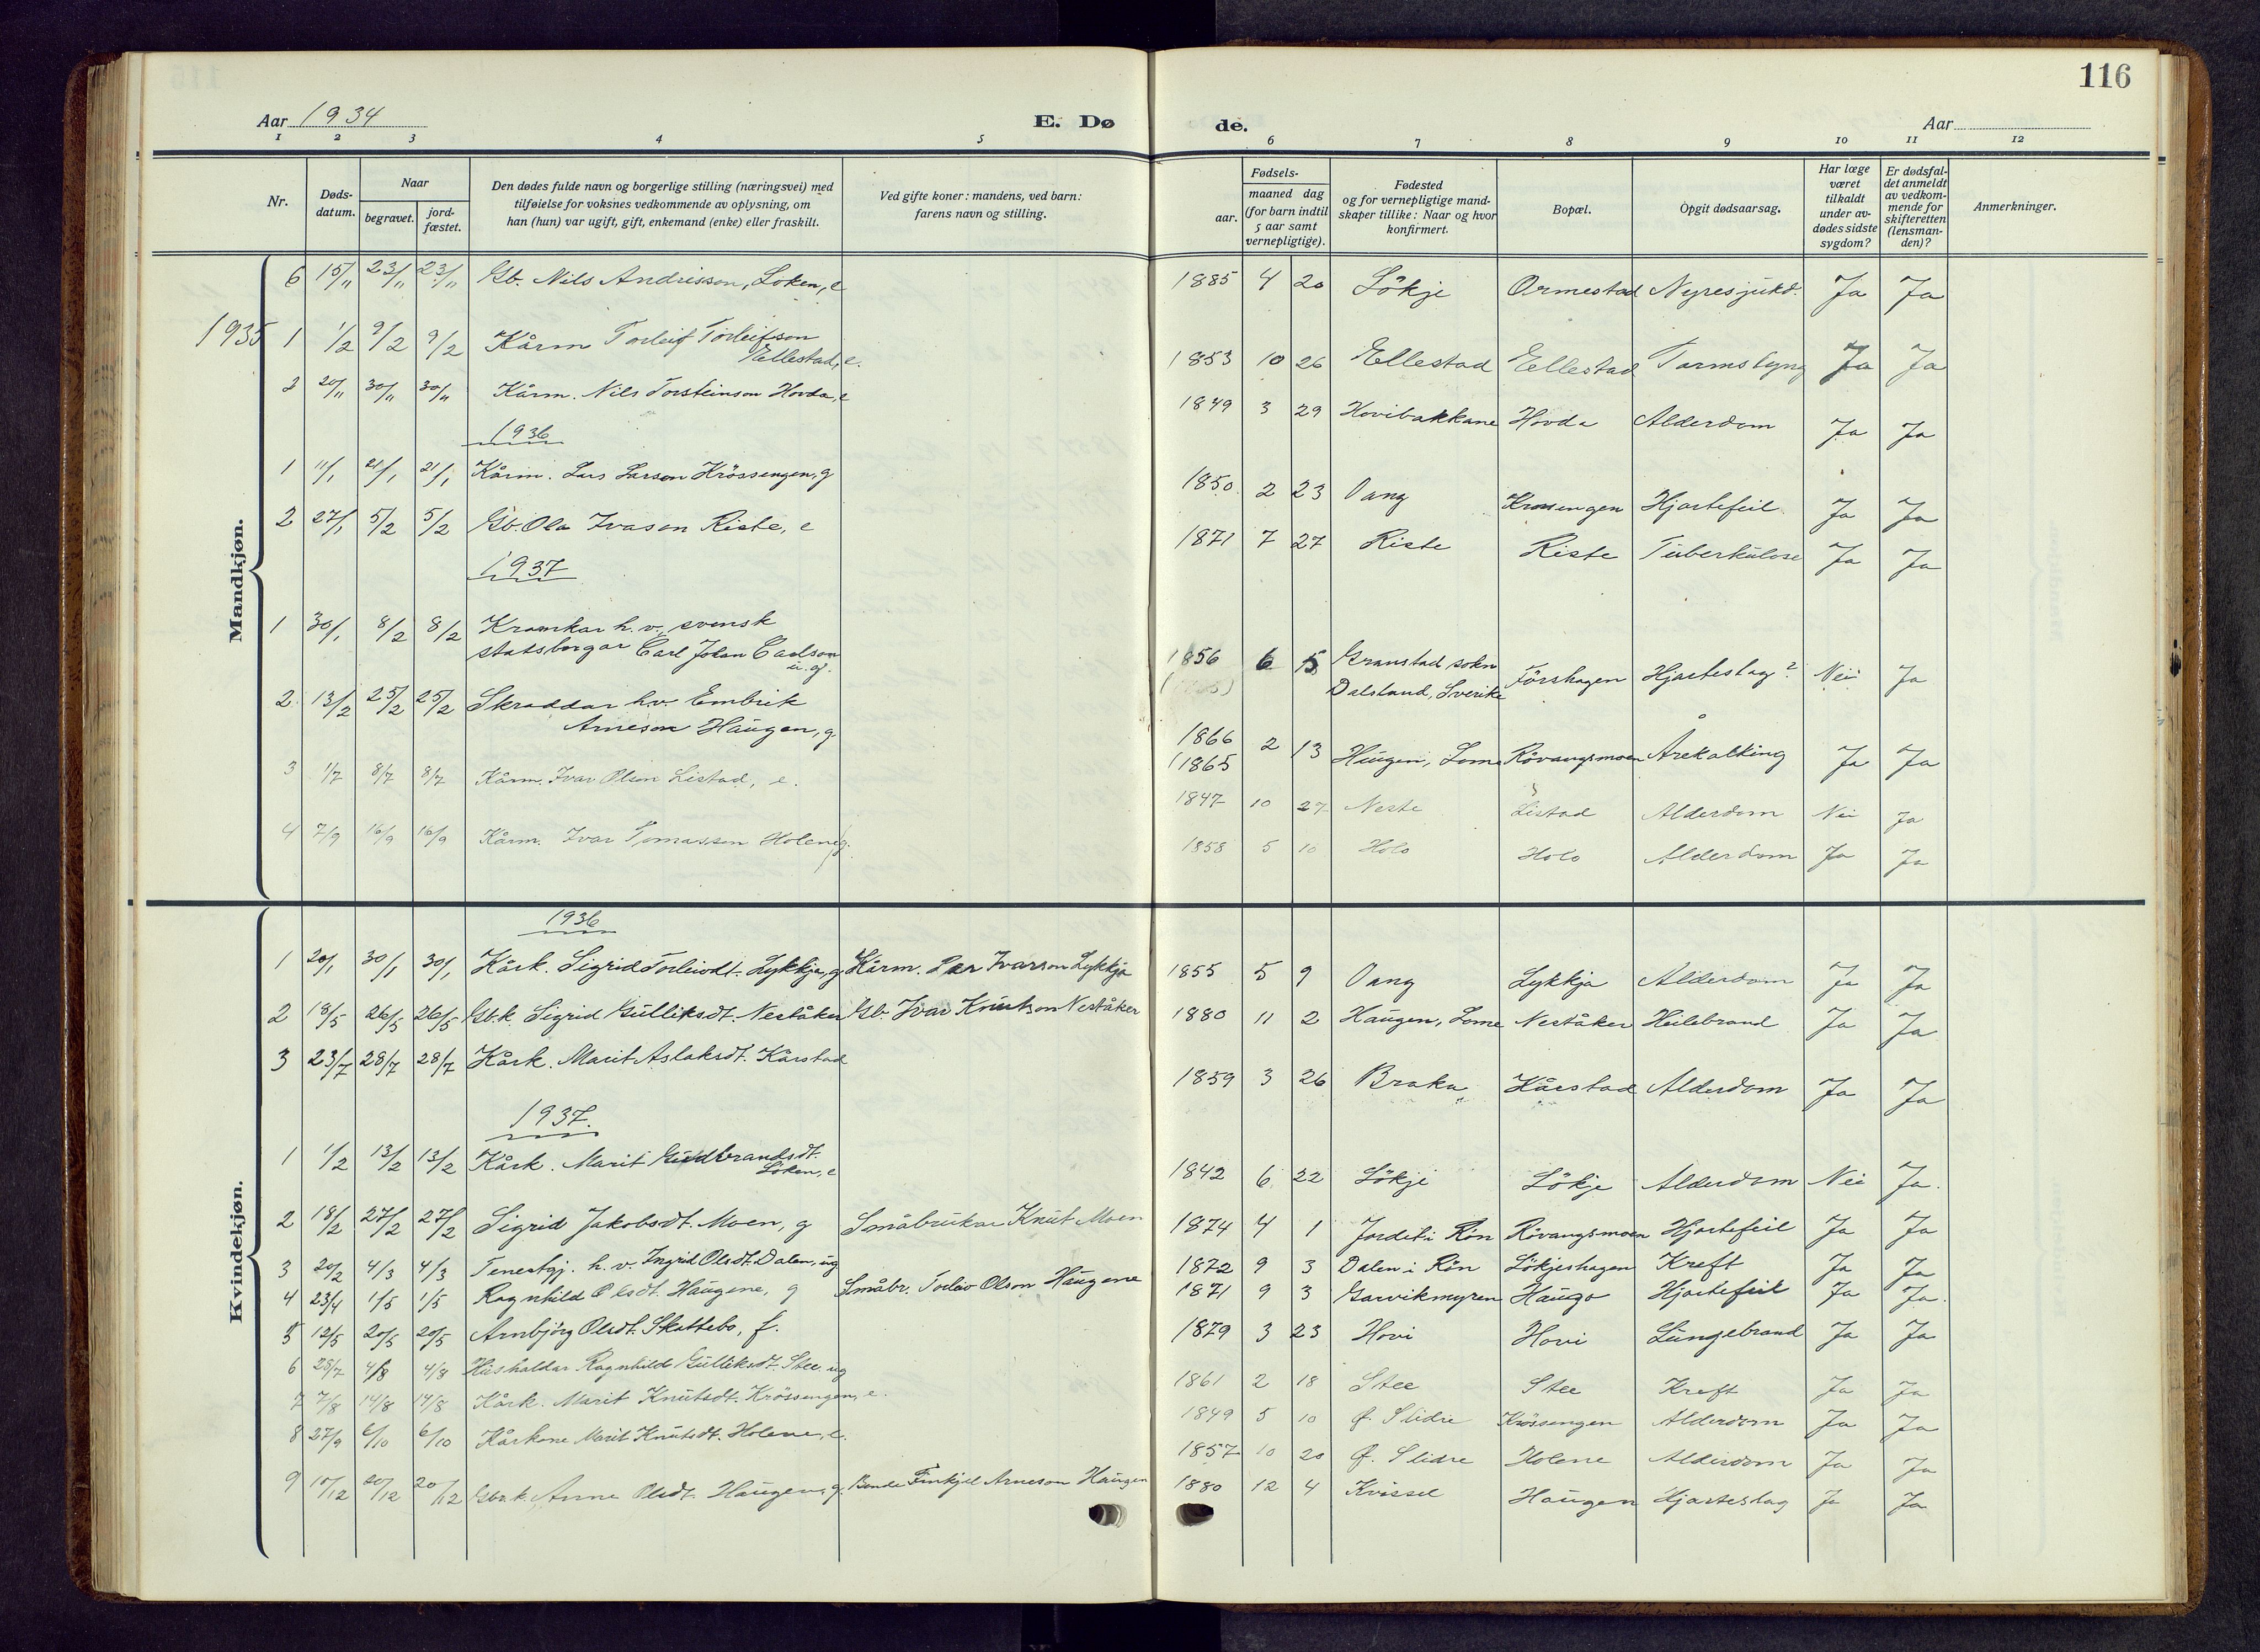 116
Aar 1934
E. Dø
de.
Aar
1 2 3 4 5 6 7 8 9 10 11 12
Nr.
Døds-
datum.
Naar
begravet.
jord-
fæstet.
Den dødes fulde navn og borgerlige stilling (næringsvei) med
tilføielse for voksnes vedkommende av oplysning, om
han (hun) var ugift, gift, enkemand (enke) eller fraskilt.
Ved gifte koner: mandens, ved barn:
farens navn og stilling.
Fødsels-
aar.
maaned dag
(for barn indtil
5 aar samt
vernepligtige).
Fødested
og for vernepligtige mand-
skaper tillike: Naar og hvor
konfirmert.
Bopæl.
Opgit dødsaarsag.
Har læge
været
tilkaldt
under av-
dødes sidste
sygdom?
Er dødsfal-
det anmeldt
av vedkom-
mende for
skifteretten
(lensman-
den)?
Anmerkninger.
Mandkjøn.
6 15/11 23/11 23/11 Gb. Nils Andrisson, Löken, e 1885 4 20 Lökje Ormestad Nyresjukd. Ja Ja
1935 1 1/2 9/2 9/2 Kårm Torleif Torleifson
Ellestad, e. 1853 10 26 Ellestad Ellestad Ja Ja
2 20/11 30/11 30/11 Kårm. Nils Torsteinson Hovda, e 1849 3 29 Hovibakkane Hovda Alderdom Ja Ja
1936
1 11/1 21/1 21/1 Kårm. Lars Larson Krössengen, g 1850. 2 23 Vang Krossengen Hjartefeil. Ja Ja
2 27/1 5/2 5/2 Gb. Ola Ivason Riste, e 1871 7 27 Riste Riste Tuberkulose Ja Ja
1937
1 30/1 8/2 8/2 Kramkar h. v., svensk
statsborgar Carl Johan Carlson
u. g. 1856 6 5 Granstad sokn
Dalsland, Sverike Förshagen Hjarteslag? Nei Ja
2. 13/2 25/2 25/2 Skraddar h.v. Embrik
Arneson Haugen, g. 1866
(1865 2 13 Haugen, Lome Røvangsmoen Årekalking Ja Ja
3 1/7 8/7 8/7 Kårm. Ivar Olson Listad, e. 1847 10 27 Neste Listad Alderdom Nei Ja
4 7/9 16/9 16/9 Kårm. Ivar Tomasson Holene, g. 1858 5 10 Holo Holo Alderdom Ja Ja
Kvindekjøn.
1936
1 20/1 30/1 30/1 Kårk. Sigrid Torleivdt. Lykkja, g Kårm. Per Ivarson Lykkja 1855 5 9 Vang Lykkja Alderdom Ja Ja
2 18/5 26/5 26/5 Gbk. Sigrid Gulliksdt. Neståker Gb. Ivar Knutson Neståker 1880 11 2 Haugen, Lome Neståker Heilebrand Ja Ja
3 23/7 28/7 28/7 Kårk. Marit Aslaksdt. Kårstad 1859 3 26 Braka Kårstad Alderdom Ja Ja
1937.
1 1/2 13/2 13/2 Kårk. Marit Gudbrandsdt.
Löken, e 1842 6 22 Lökje Lökje Alderdom Nei Ja.
2 18/2 27/2 27/2 Sigrid Jakobsdt. Moen, g Småbrukar Knut Moen 1874 4 1 Jordet i Røn Røvangsmoen Hjartefeil Ja Ja
3 20/2 4/3 4/3 Tenestgj. h. v. Ingrid Olsdt. Dalen, ug 1872 9 3 Dalen i Røn Lökjeshagen Kreft Ja Ja
4 23/4 1/5 1/5 Ragnhild Olsdt. Haugene, g Småbr. Torleiv Olson Haugene 1871 9 3 Garvikmyren Haugo Hjartefeil Ja Ja.
5 12/5 20/5 20/5 Arnbjörg Olsdt. Skattebo, f. 1879 3 23 Hovi Hovi Lungebrand Ja Ja
6 28/7 4/8 4/8 Hushaldar Ragnhild Gulliksdt. Stee ug 1861 2 18 Stee Stee Kreft Ja Ja
7 7/8 14/8 14/8 Kårk. Marit Knutsdt. Krössengen, e. 1849 5 10 Ø. Slidre Krössengen Alderdom Ja Ja
8 27/9 6/10 6/10 Kårkone Marit Knutsdt. Holene, e. 1857 10 20 Ø. Slidre Holene Alderdom Ja Ja
9 10/12 20/12 20/12 Gbr.k. Anne Olsdt. Haugen, g. Bonde Finkjel Arneson Haugen 1880 12 4 Kvissel Haugen Hjarteslag Ja Ja